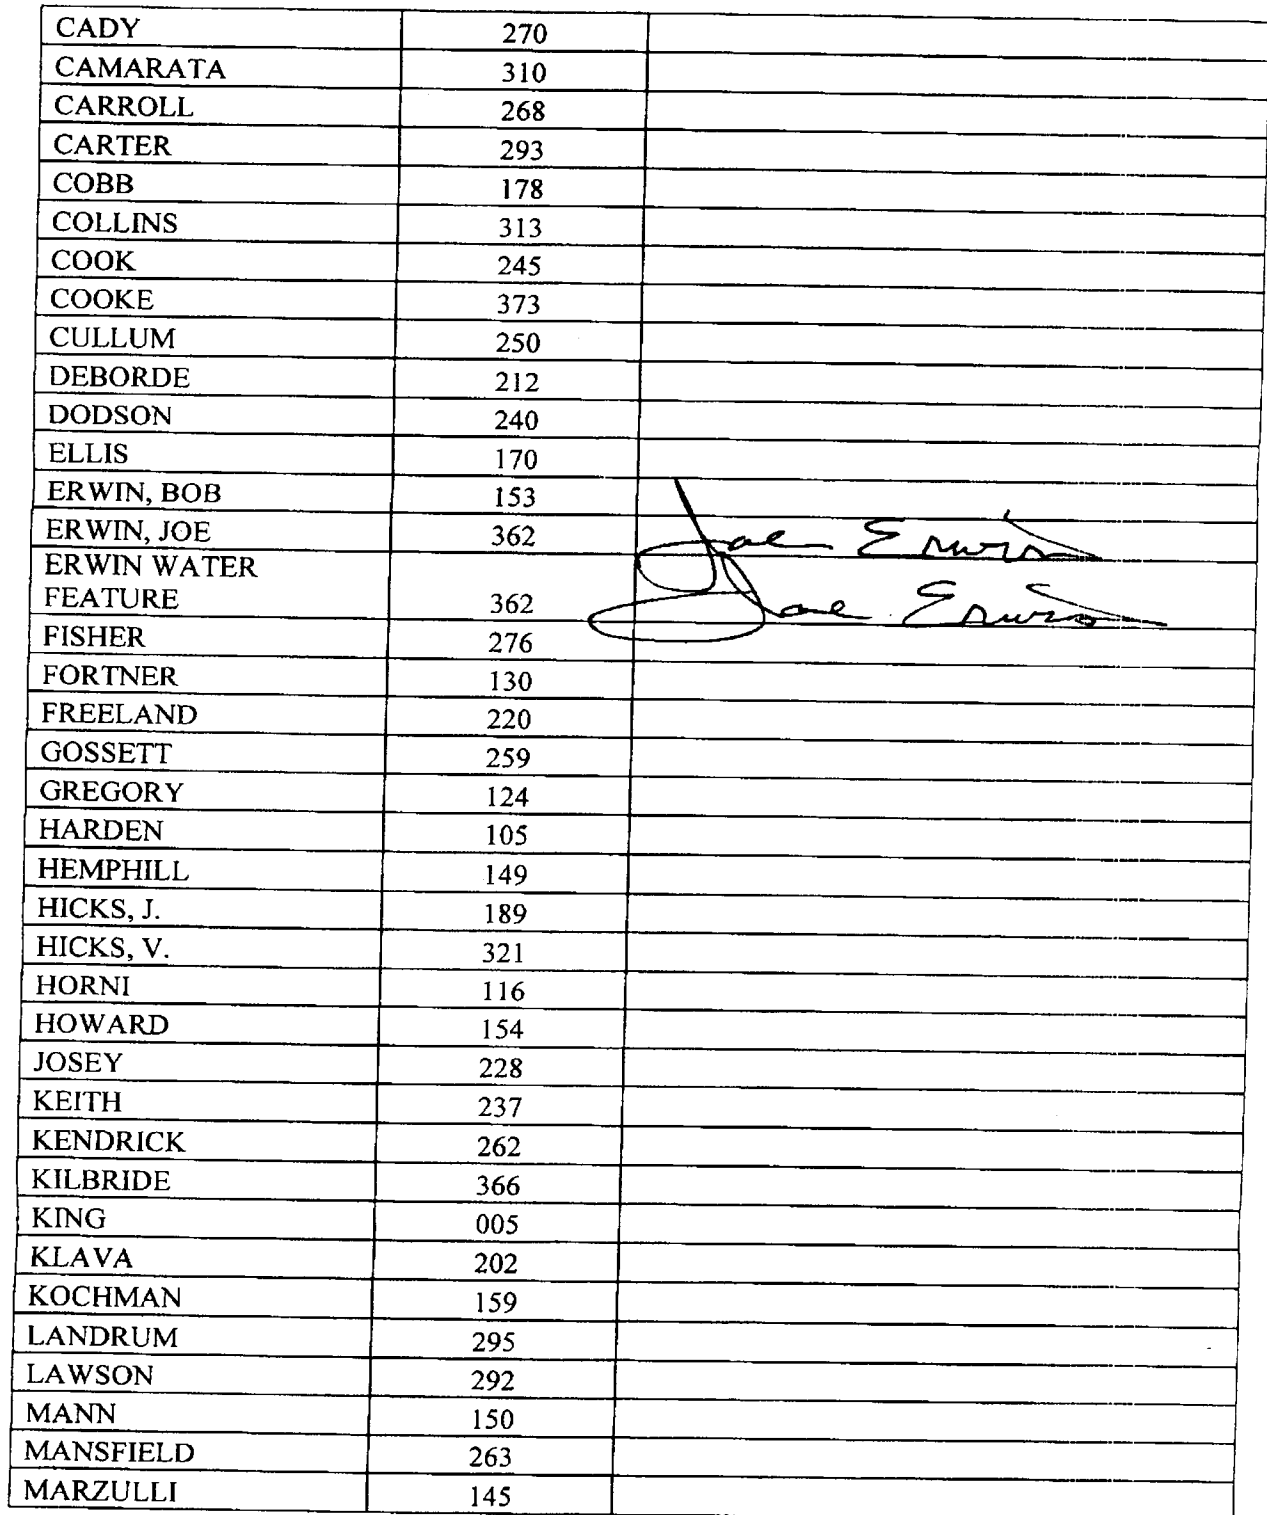 CADY 270
CAMARATA 310
CARROLL 268
CARTER 293
COBB 178
COLLINS 313
COOK 245
COOKE 373
CULLUM 250
DEBORDE 212
DODSON 240
ELLIS 170
ERWIN, BOB 153
ERWIN, JOE 362 Joe Erwin
ERWIN WATER
FEATURE 362 Joe Erwin
FISHER 276
FORTNER 130
FREELAND 220
GOSSETT 259
GREGORY 124
HARDEN 105
HEMPHILL 149
HICKS, J. 189
HICKS, V. 321
HORNI 116
HOWARD 154
JOSEY 228
KEITH 237
KENDRICK 262
KILBRIDE 366
KING 005
KLAVA 202
KOCHMAN 159
LANDRUM 295
LAWSON 292
MANN 150
MANSFIELD 263
MARZULLI 145